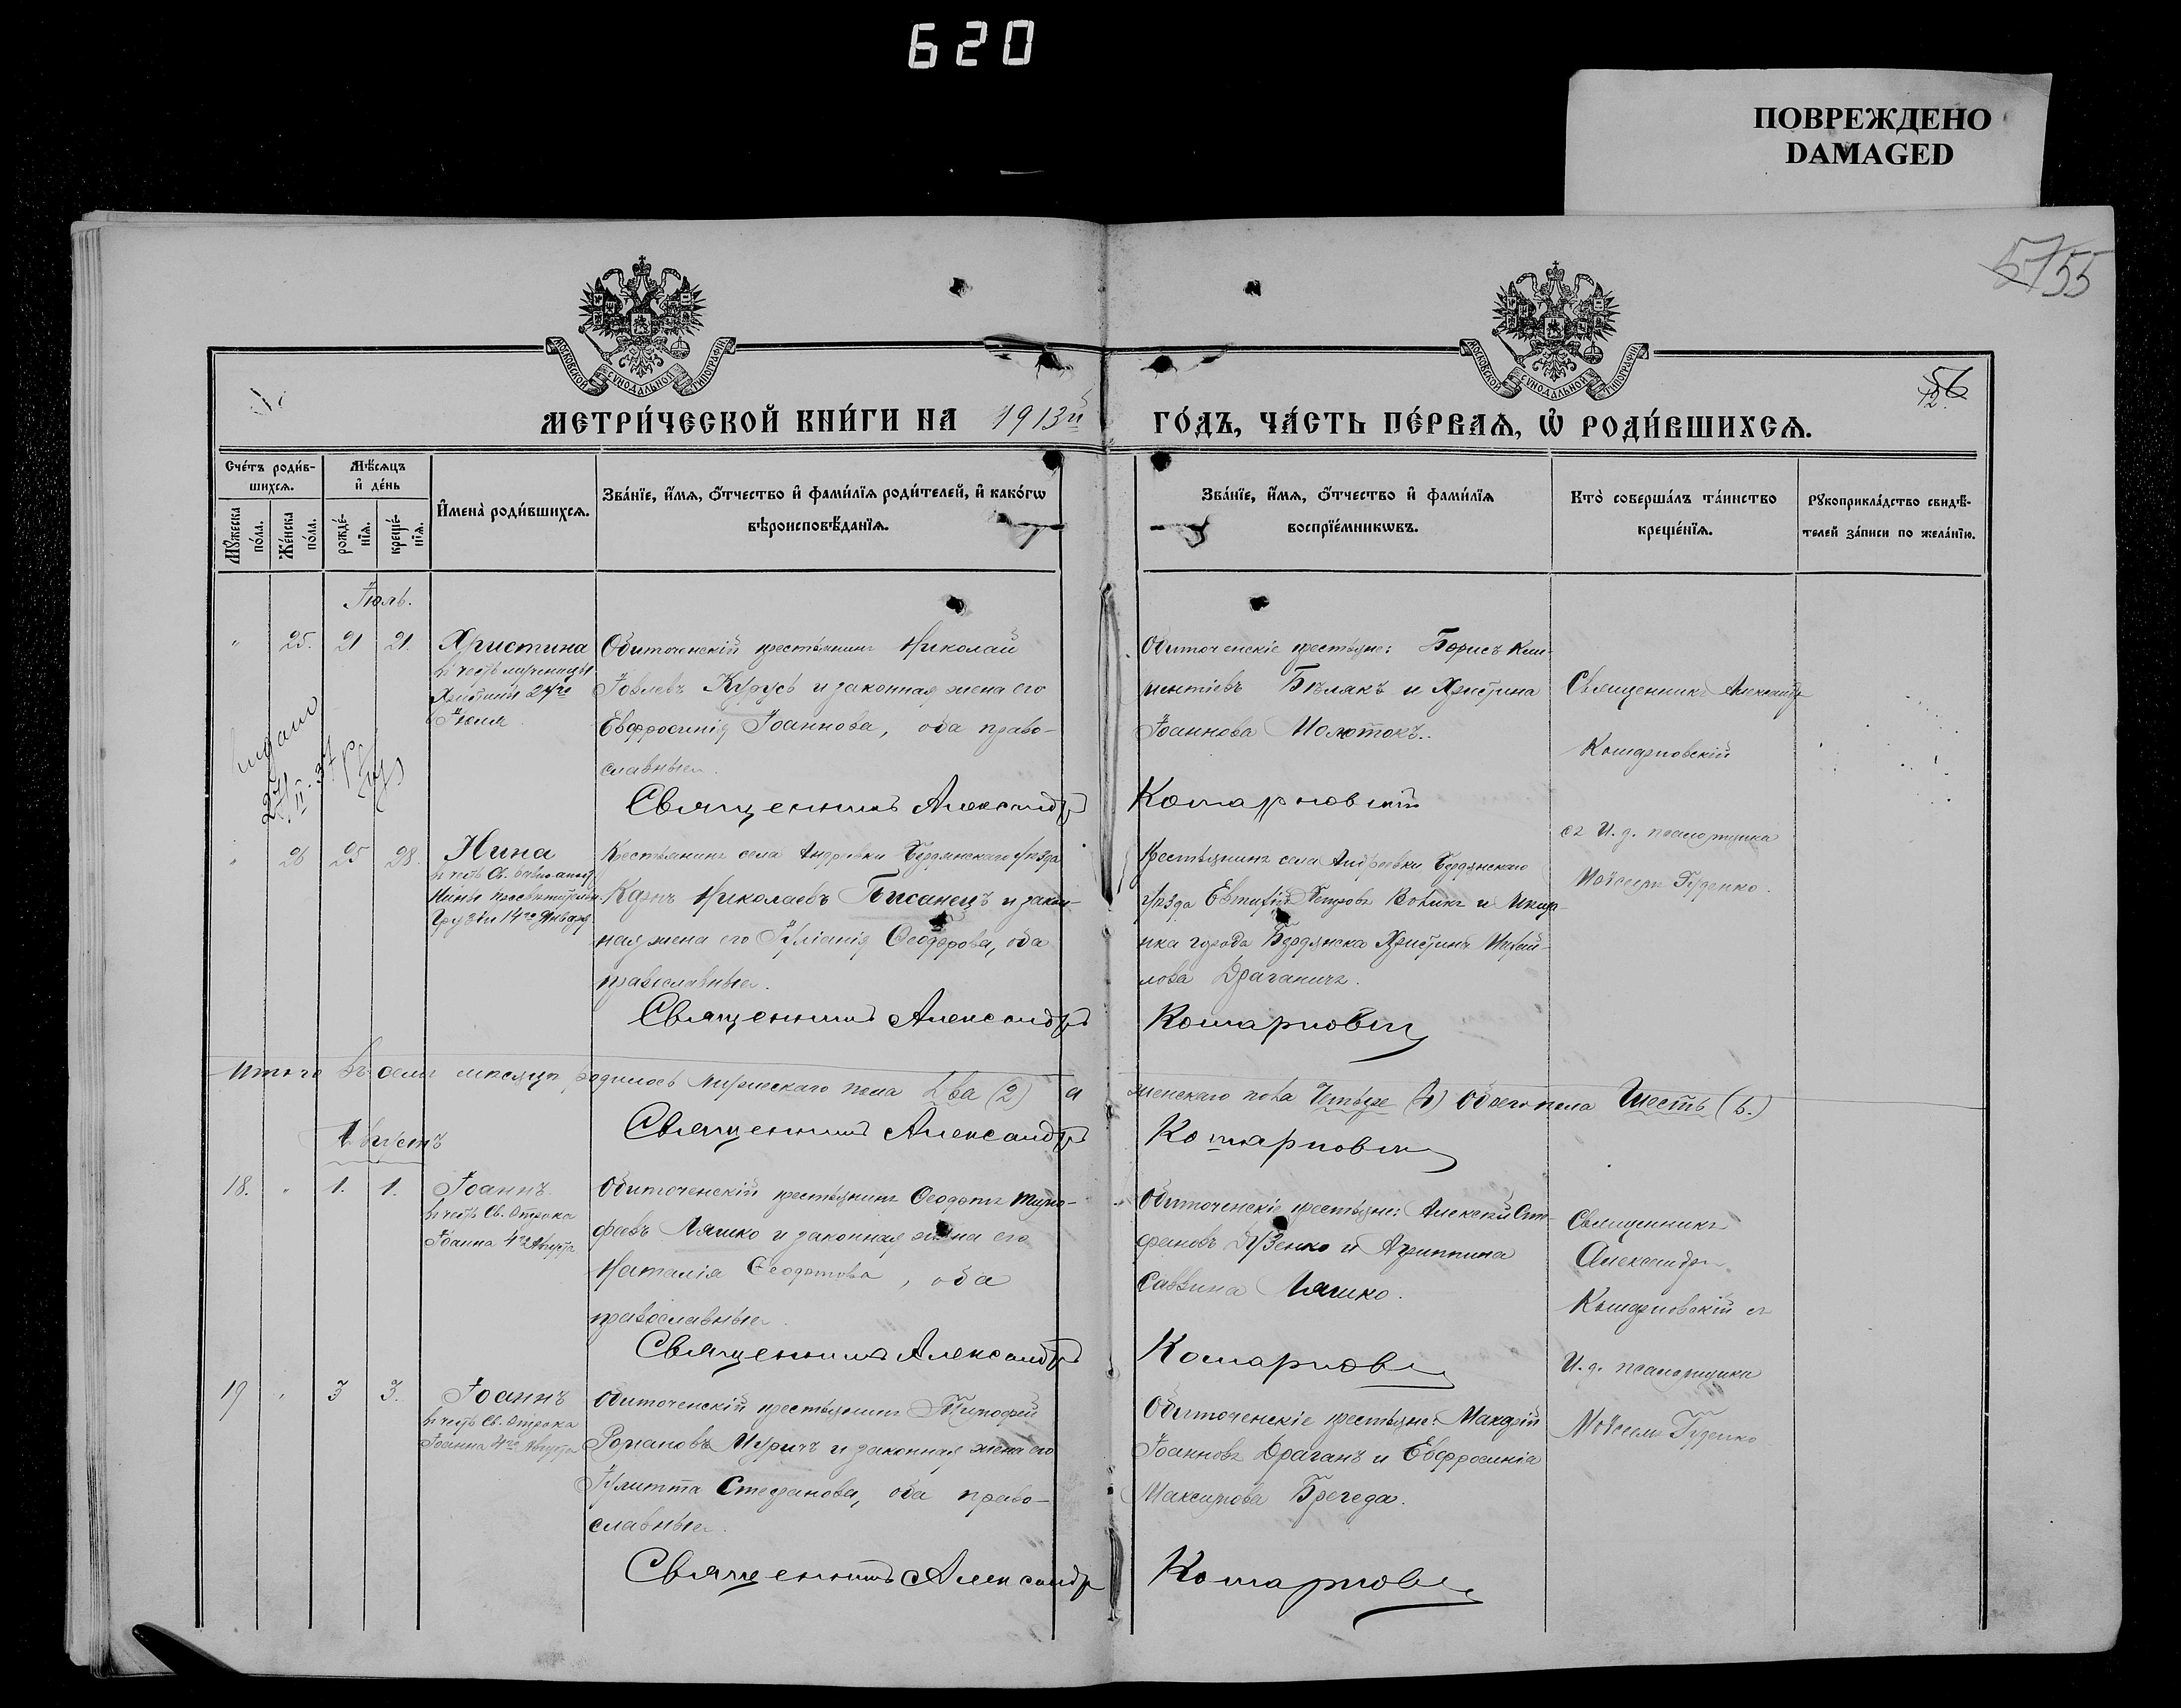 620
ПОВРЕЖДЕНО
DAMAGED
55
56
12.
МОСКОВСКОЙ СѴНОДАЛЬНОЙ ТИПОГРАФІИ
МОСКОВСКОЙ СѴНОДАЛЬНОЙ ТИПОГРАФІИ
МЕТРИ́ЧЕСКОЙ КНИ́ГИ НА 1913й ГО́ДЪ, ЧА́СТЬ ПЕ́РВАѦ, Ѡ҆ РОДИ́ВШИХСѦ.
Сче́тъ роди́в-
шихсѧ.
Мѣ́сѧцъ
и҆ де́нь
Мꙋ́жеска
по́ла.
Же́нска
по́ла.
рожде́-
нїѧ.
креще́-
нїѧ.
И҆мена̀ роди́вшихсѧ.
Зва́нїе, и҆́мѧ, ѻ҆́тчество и҆ фами́лїѧ роди́телей, и҆ како́гѡ
вѣроисповѣ́данїѧ.
Зва́нїе, и҆́мѧ, ѻ҆́тчество и҆ фами́лїѧ
воспрїе́мникѡвъ.
Кто̀ соверша́лъ та́инство
креще́нїѧ.
Рꙋкоприкла́дство свидѣ́-
телей за́писи по жела́нїю.
Іюль.
" 25. 21 21. Христина
въ честь мученицы
Христины 24го
Іюля
Обиточенскій крестьянинъ Николай
Іовлевъ Курусь и законная жена его
Евфросинія Іоаннова, оба право-
славные.
Священникъ Александръ
Обиточенскіе крестьяне: Борисъ Кли-
ментіевъ Бѣлякъ и Христина
Іоаннова Молотокъ.
Комарновскій
Священникъ Александръ
Комарновскій
съ И. д. псаломщика
Моѵсеемъ Гуденко.
27/II.37
" 26 25 28. Нина
въ честь Св. равноапост.
Нины просвѣтительн.
Грузіи 14го Января
Крестьянинъ села Андреевки Бердянскаго уѣзда
Карпъ Николаевъ Писанецъ и закон-
ная жена его Іуліанія Ѳеодорова, оба
православные.
Священникъ Александръ
Крестьянинъ села Андреевки Бердянскаго
уѣзда Евтихій Петровъ Вовкъ и
города Бердянска Христина Михай-
лова Драганичъ.
Комарновскій
Итого въ семъ мѣсяцѣ родилось мужескаго пола Два (2) а женскаго пола Четыре (4) Обоего пола Шесть (6.)
Священникъ Александръ Комарновскій
Августъ
18. " 1. 1. Іоаннъ
въ честь Св. Отрока
Іоанна 4го Августа
Обиточенскій крестьянинъ Ѳеодотъ Тимо-
феевъ Ляшко и законная жена его
Наталія Ѳеодотова, оба
православные.
Священникъ Александръ
Обиточенскіе крестьяне: Алексѣй Сте-
фановъ Дузенко и Агриппина
Саввина Ляшко.
Комарновскій
Священникъ
Александръ
Комарновскій съ
И. д. псаломщика
Моѵсеемъ Гуденко
19 " 3 3. Іоаннъ
въ честь Св. Отрока
Іоанна 4го Августа
Обиточенскій крестьянинъ Тимофей
Романовъ Муричъ и законная жена его
Іулитта Стефанова, оба право-
славные.
Священникъ Александръ
Обиточенскіе крестьяне: Макарій
Іоанновъ Драганъ и Евфросинія
Максимова Брегеда.
Комарновскій